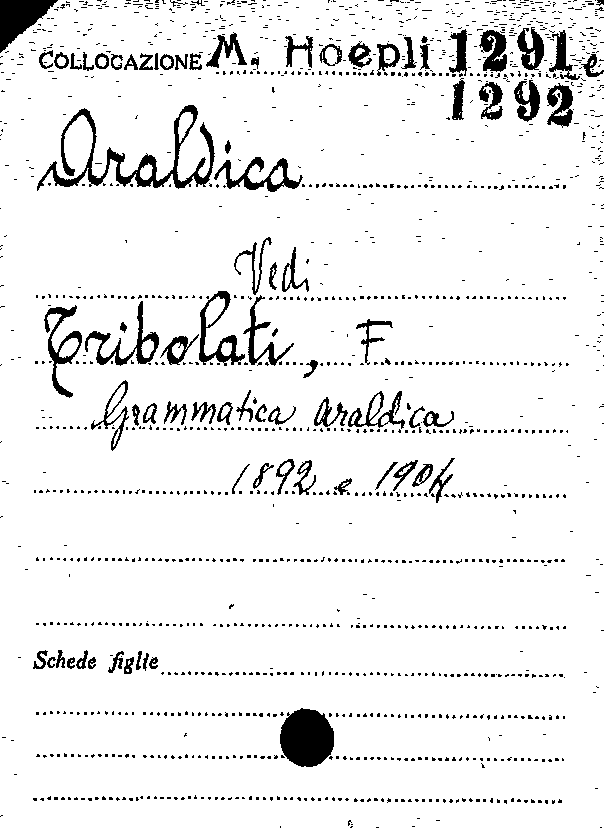 COLLOCAZIONE M. Hoepli 1291 e
1292
Araldica
Vedi
Tribolati, F.
Grammatica araldica
1892 e 1904
Schede figlie